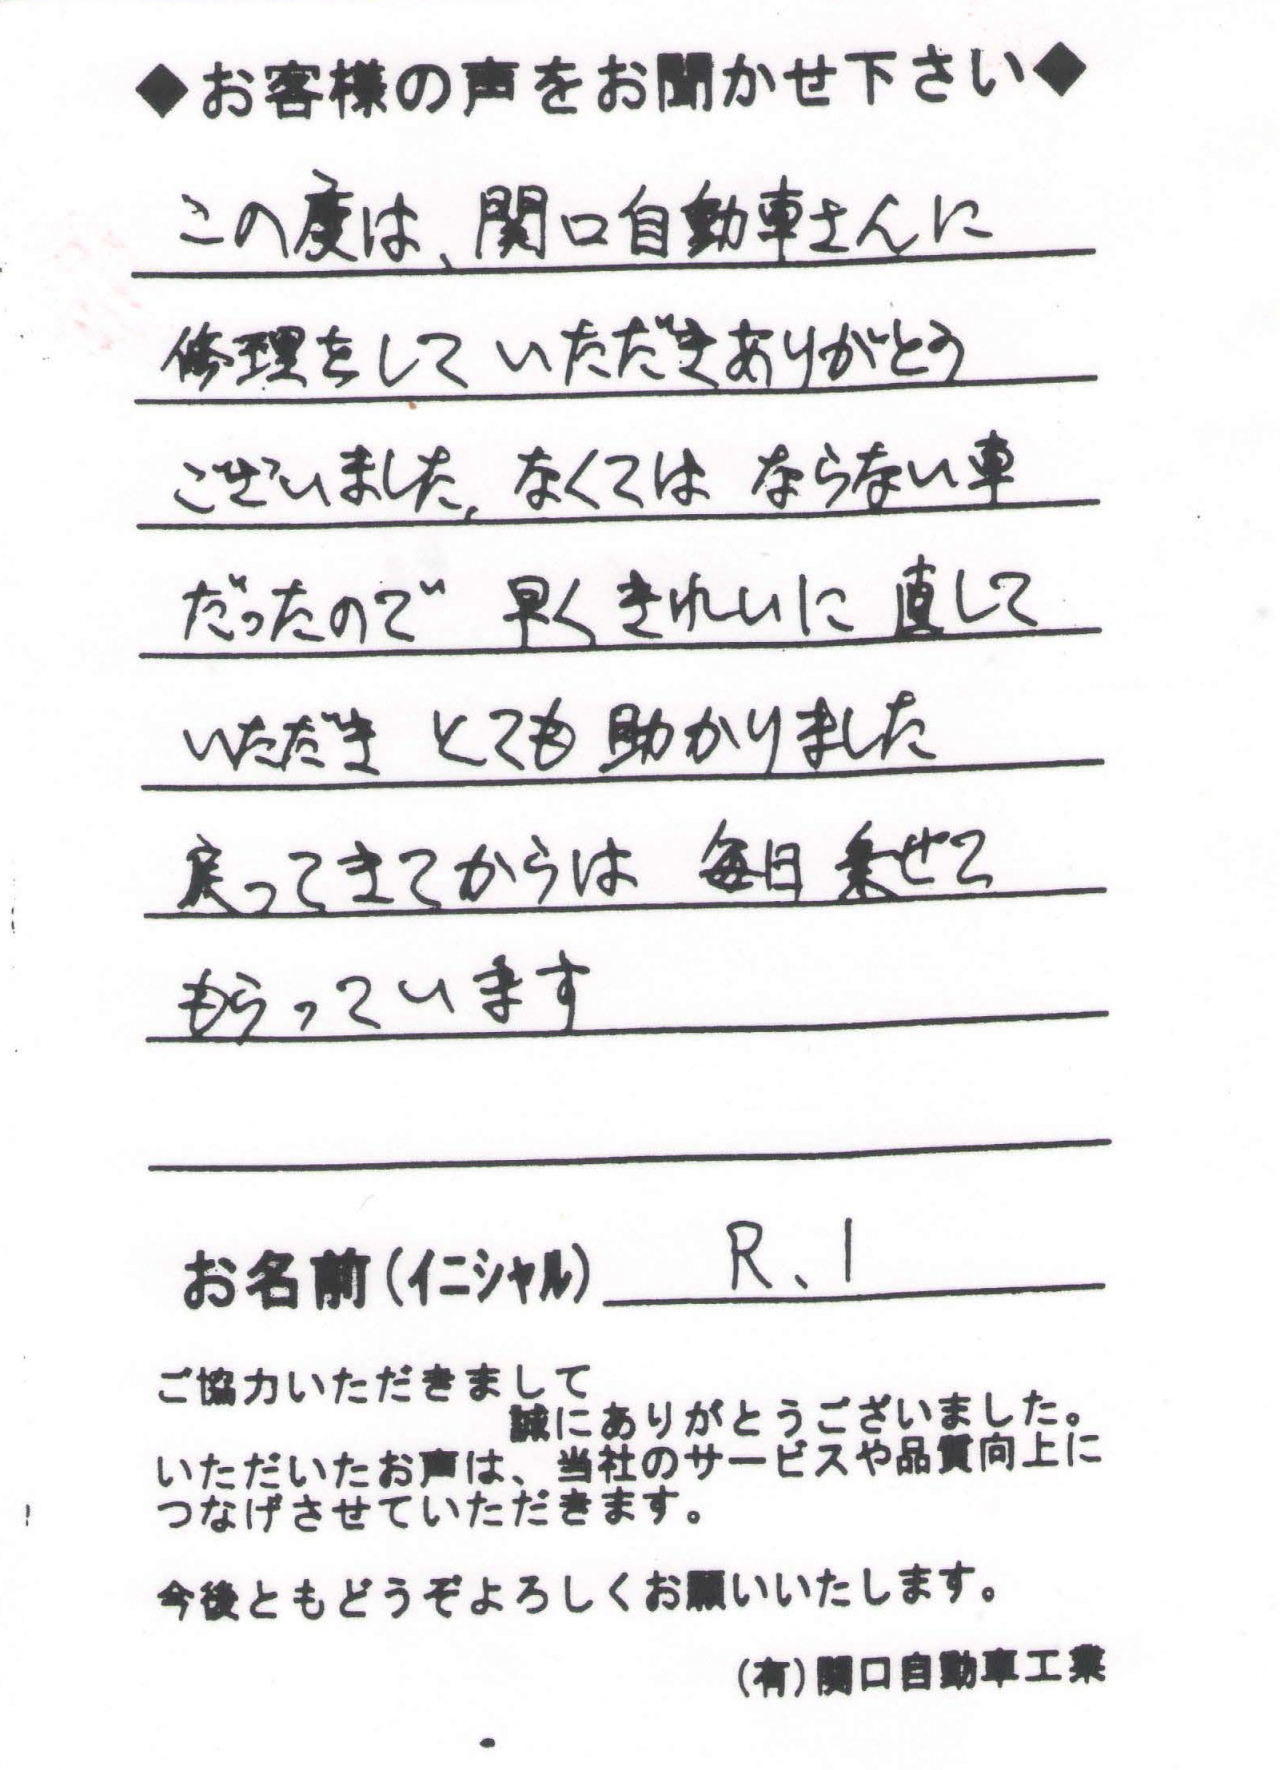 ◆お客様の声をお聞かせ下さい◆
この度は、関口自動車さんに
修理をして いただきありがとう
ございました、なくては ならない車
だったので 早く きれいに 直して
いただき とても 助かりました
戻ってきてからは 毎日 乗せて
もらっています
お名前(イニシャル) R、I
ご協力いただきまして
誠にありがとうございました。
いただいたお声は、当社のサービスや品質向上に
つなげさせていただきます。
今後ともどうぞよろしくお願いいたします。
(有)関口自動車工業